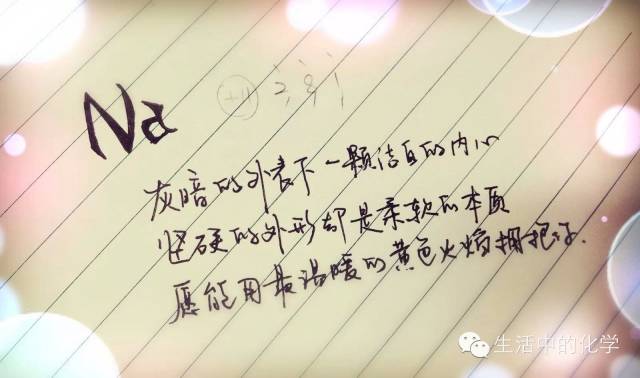 Na +11 2, 8, 1
灰暗的外表下一颗洁白的内心
坚硬的外形却是柔软的本质
愿能用最温暖的黄色火焰拥抱你.
生活中的化学